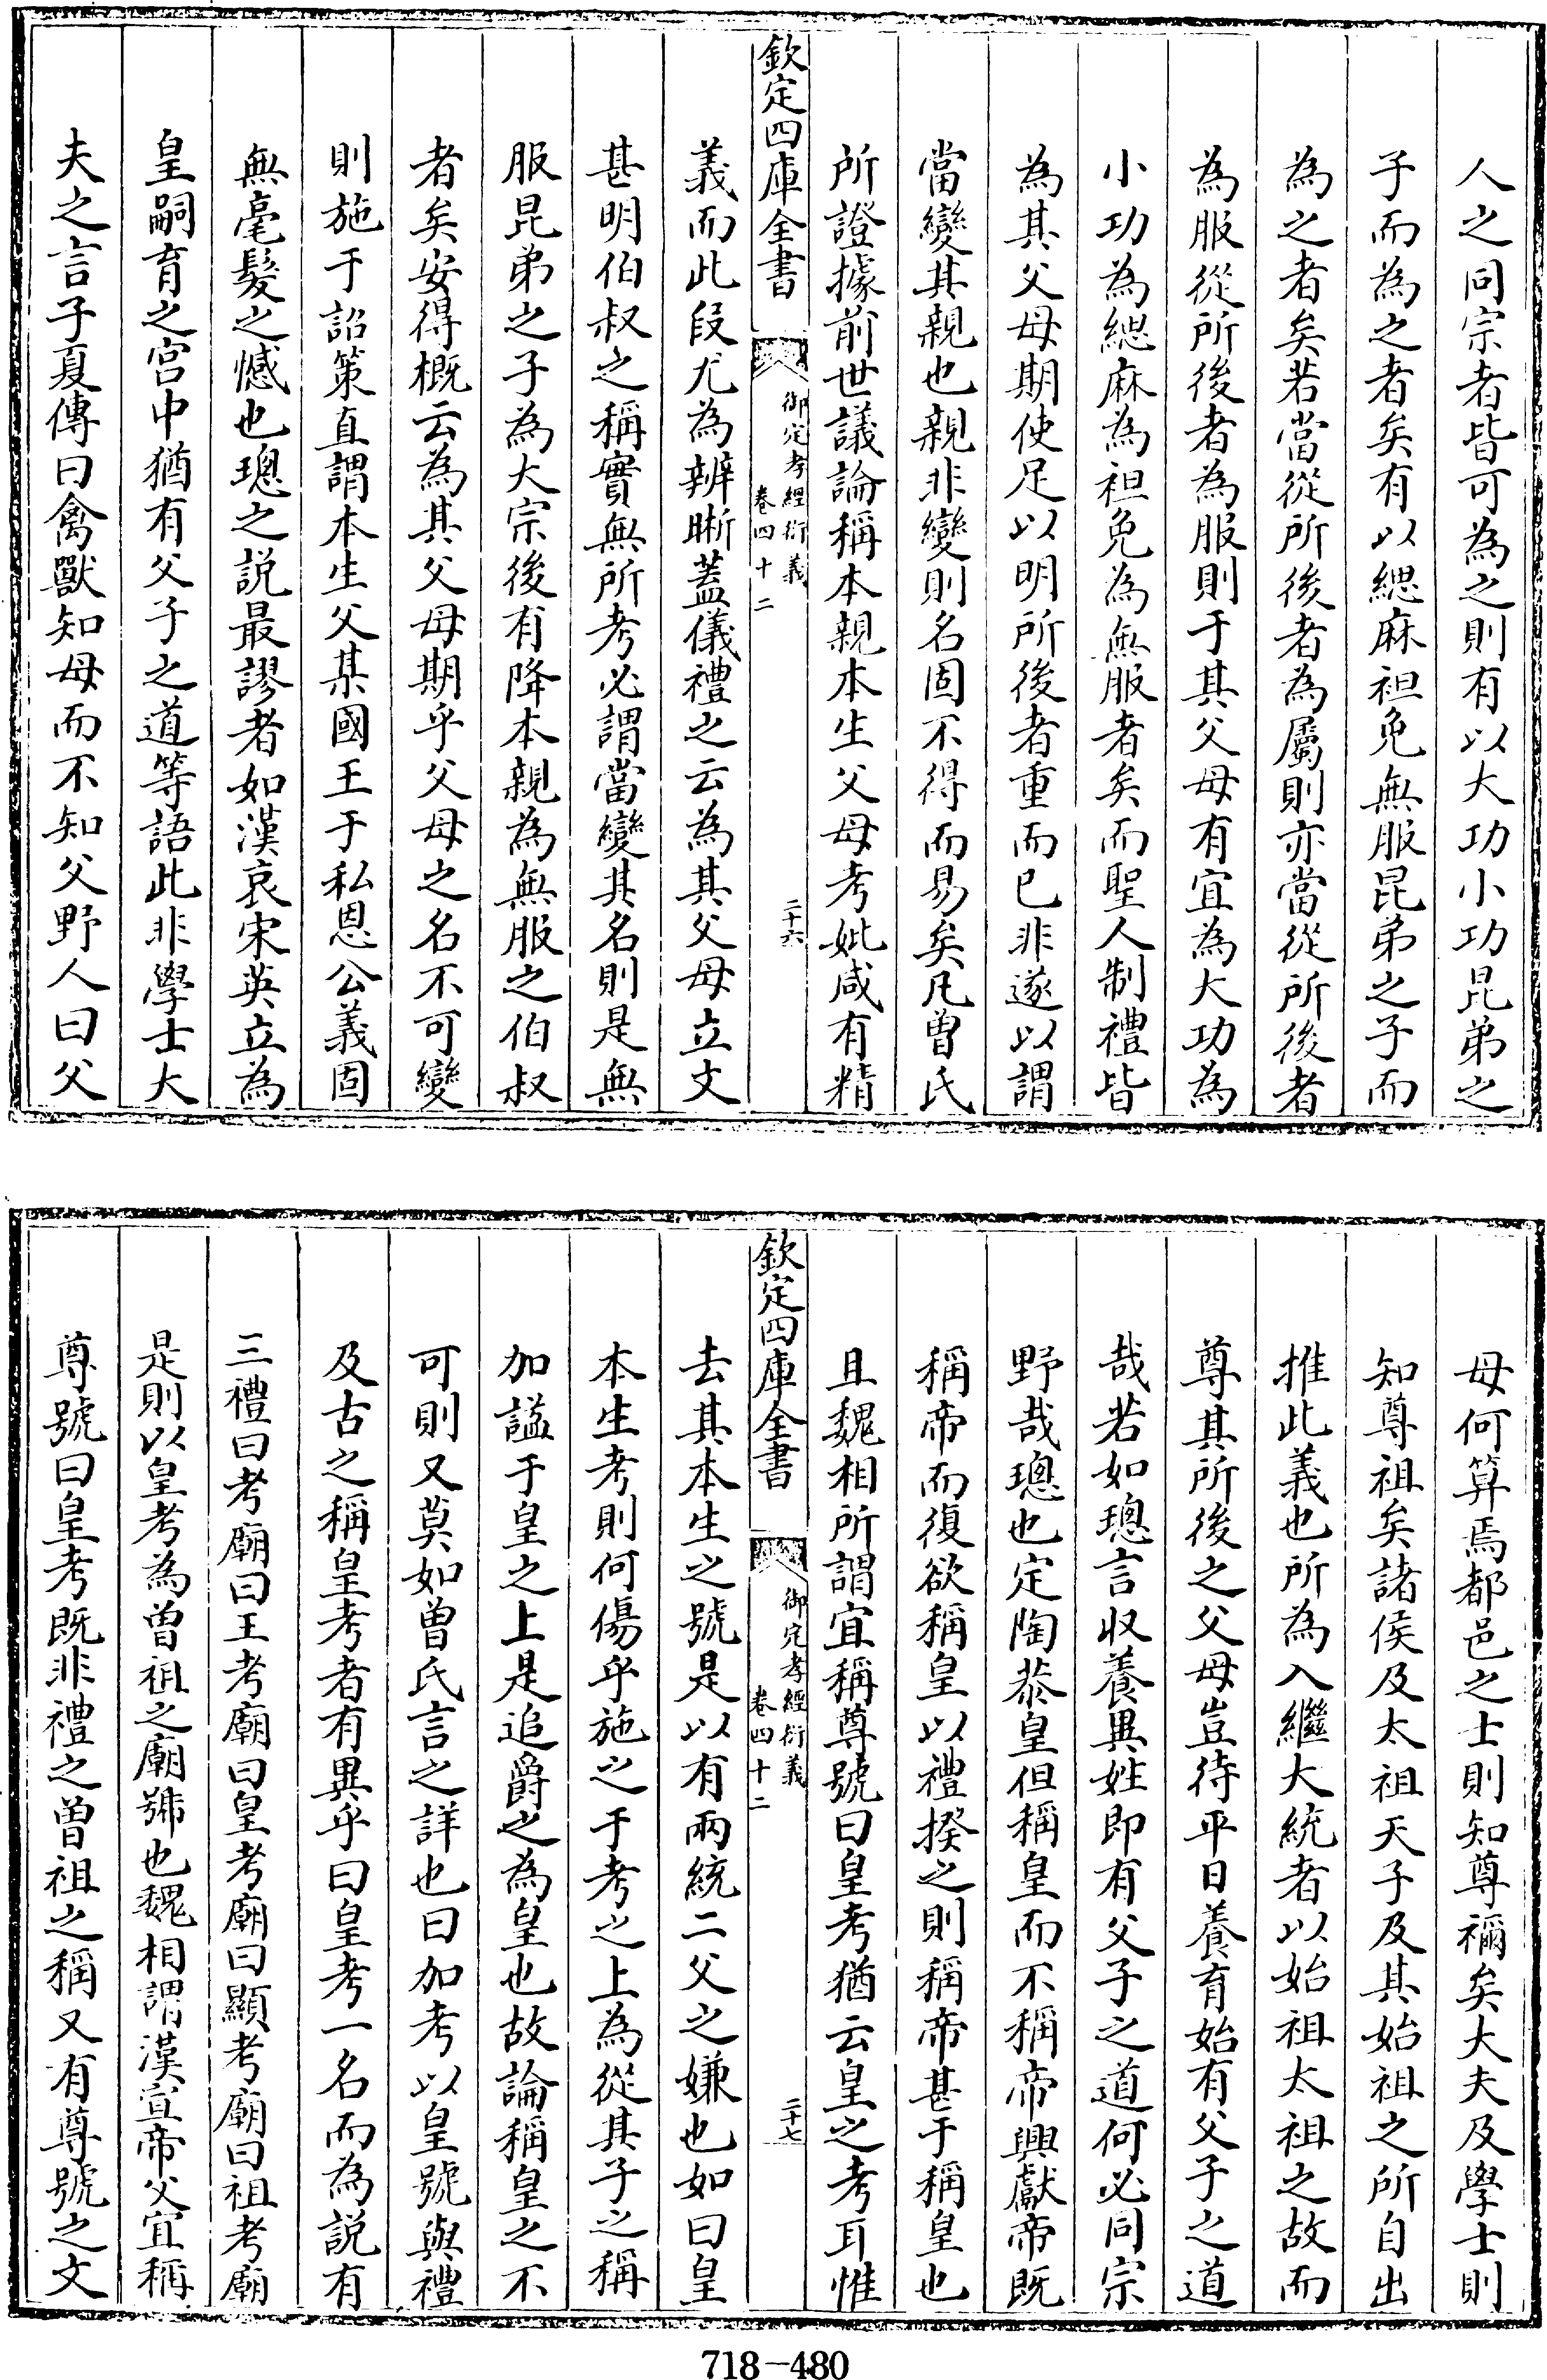 人之同宗者皆可為之則有以大功小功昆弟之
子而為之者矣有以緦麻袒免無服昆弟之子而
為之者矣若當從所後者為屬則亦當從所後者
為服從所後者為服則于其父母有宜為大功為
小功為緦麻為袒免為無服者矣而聖人制禮皆
為其父母期使足以明所後者重而已非遂以謂
當變其親也親非變則名固不得而易矣凡曾氏
所證據前世議論稱本親本生父母考妣咸有精
欽定四庫全書
御定孝經衍義
卷四十二
二十六
義而此段尤為辨晰蓋儀禮之云為其父母立文
甚明伯叔之稱實無所考必謂當變其名則是無
服昆弟之子為大宗後有降本親為無服之伯叔
者矣安得概云為其父母期乎父母之名不可變
則施于詔策直謂本生父某國王于私恩公義固
無毫髮之憾也璁之説最謬者如漢哀宋英立為
皇嗣育之宫中猶有父子之道等語此非學士大
夫之言子夏傳曰禽獸知母而不知父野人曰父
母何算焉都邑之士則知尊禰矣大夫及學士則
知尊祖矣諸侯及太祖天子及其始祖之所自出
推此義也所為入繼大統者以始祖太祖之故而
尊其所後之父母豈待平日養育始有父子之道
哉若如璁言收養異姓即有父子之道何必同宗
野哉璁也定陶恭皇但稱皇而不稱帝興獻帝既
稱帝而復欲稱皇以禮揆之則稱帝甚于稱皇也
且魏相所謂宜稱尊號曰皇考猶云皇之考耳惟
欽定四庫全書
御定孝經衍義
卷四十二
二十七
去其本生之號是以有兩統二父之嫌也如曰皇
本生考則何傷乎施之于考之上為從其子之稱
加諡于皇之上是追爵之為皇也故論稱皇之不
可則又莫如曾氏言之詳也曰加考以皇號與禮
及古之稱皇考者有異乎曰皇考一名而為説有
三禮曰考廟曰王考廟曰皇考廟曰顯考廟曰祖考廟
是則以皇考為曾祖之廟號也魏相謂漢宣帝父宜稱
尊號曰皇考既非禮之曾祖之稱又有尊號之文
718-480